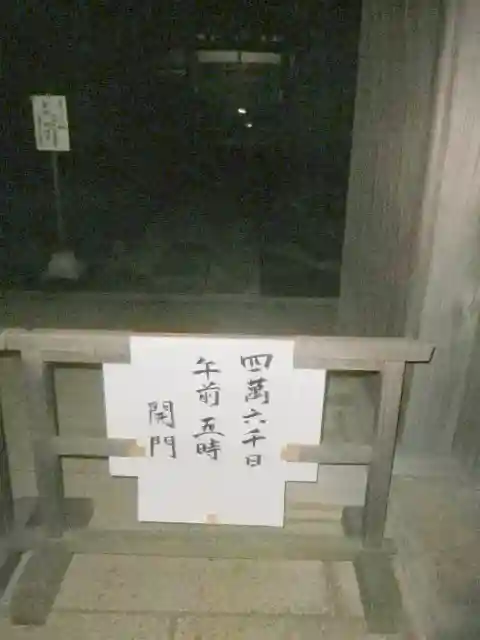 四萬六千日
午前五時
開門